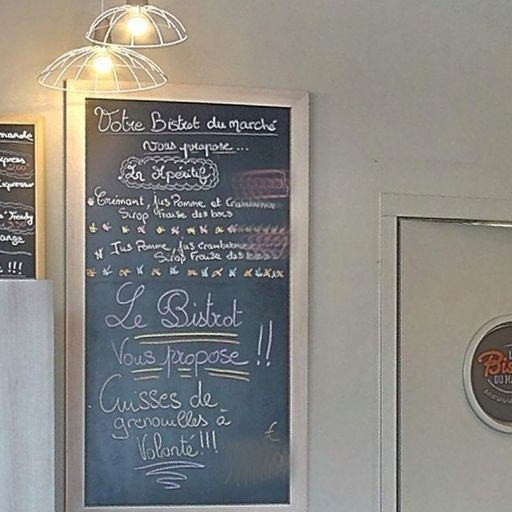 Votre Bistrot du marché
vous propose...
En Apéritif
Crémant, Jus Pomme et Cramberrie
Sirop Fraise des bois
Jus Pomme, Jus Cramberrie
Sirop Fraise des bois
Le Bistrot
Vous propose !!
Cuisses de
grenouilles à
Volonté!!!
€
!!!